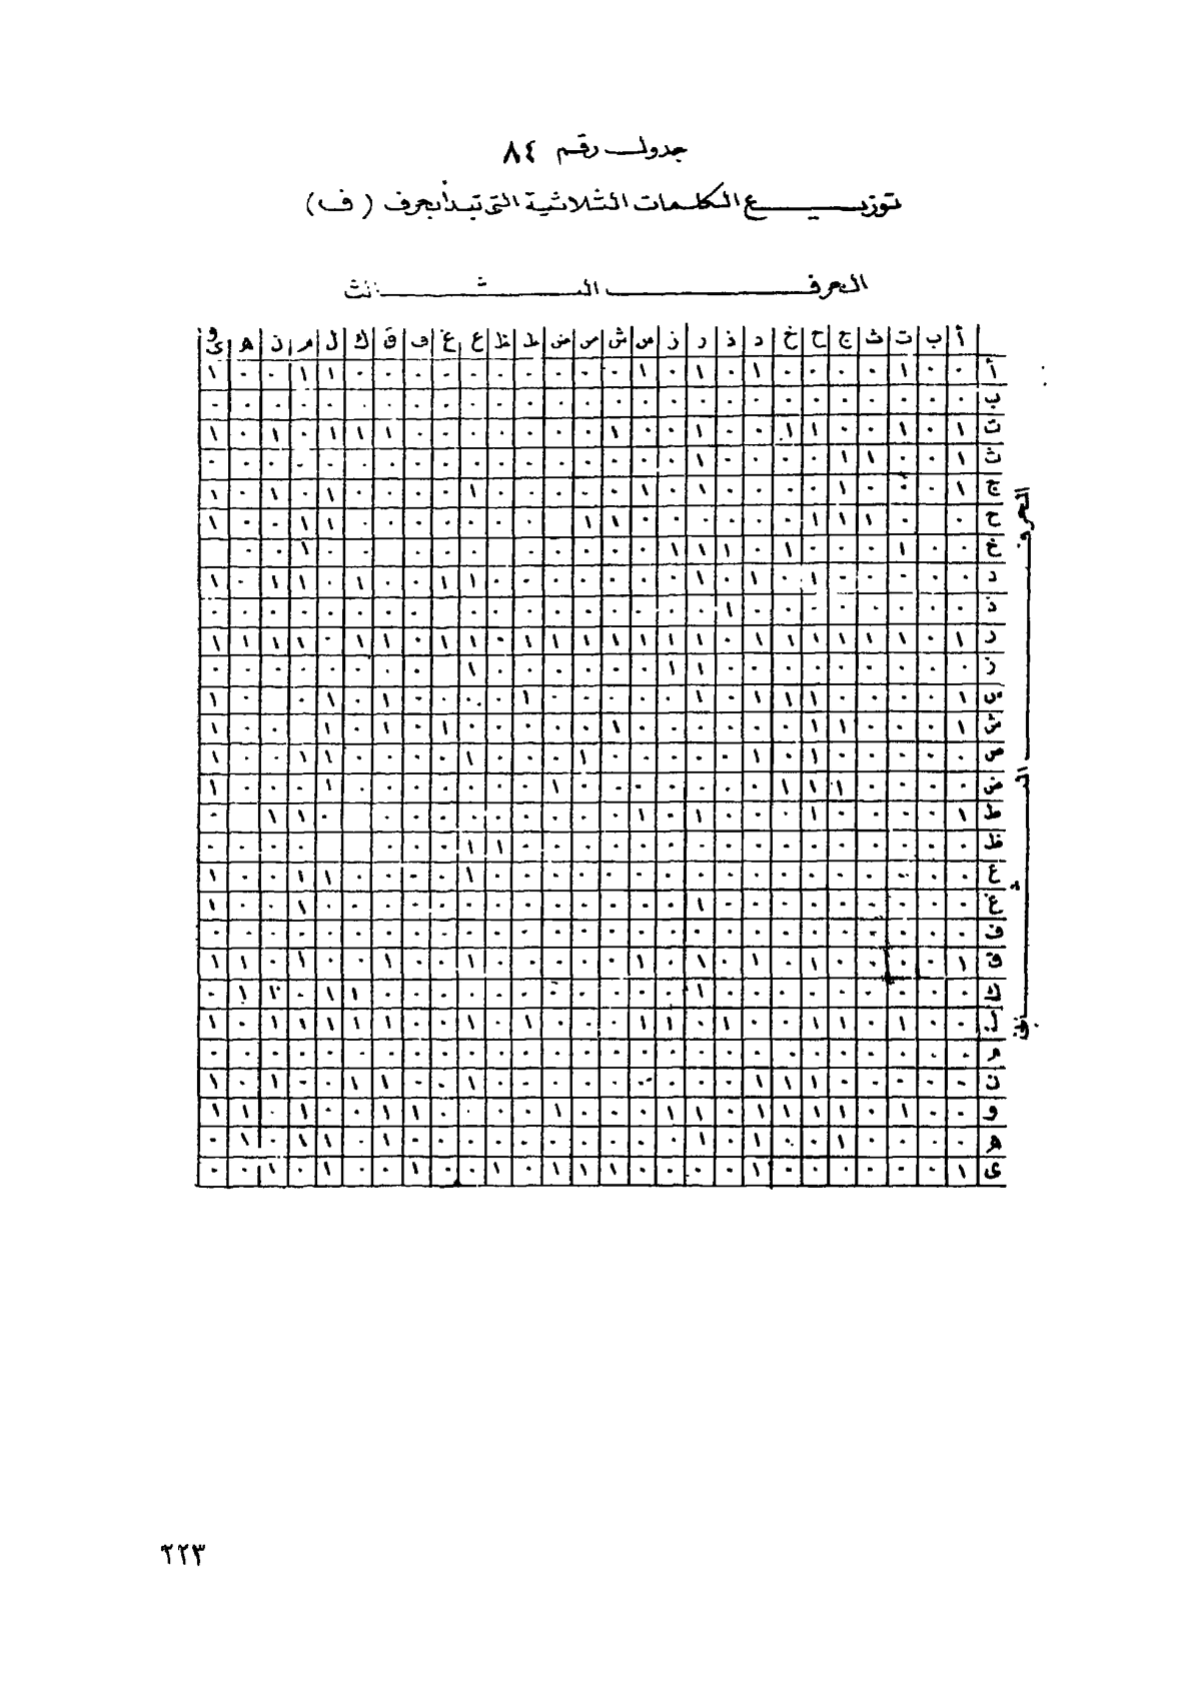 جدول رقم ٨٤
توزيع الكلمات الثلاثية التى تبدأ بحرف ( ف )
الحرف الثالث
أ ب ت ث ج ح خ د ذ ر ز س ش ص ض ط ظ ع غ ف ق ك ل م ن ه و ى
أ ٠ ٠ ١ ٠ ٠ ٠ ٠ ١ ٠ ١ ٠ ١ ٠ ٠ ٠ ٠ ٠ ٠ ٠ ٠ ٠ ٠ ١ ١ ٠ ٠ ١
ب ٠ ٠ ٠ ٠ ٠ ٠ ٠ ٠ ٠ ٠ ٠ ٠ ٠ ٠ ٠ ٠ ٠ ٠ ٠ ٠ ٠ ٠ ٠ ٠ ٠ ٠ ٠
ت ١ ٠ ١ ٠ ٠ ١ ١ ٠ ٠ ١ ٠ ٠ ١ ٠ ٠ ٠ ٠ ٠ ٠ ٠ ١ ١ ١ ٠ ١ ٠ ١
ث ١ ٠ ٠ ١ ١ ٠ ٠ ٠ ٠ ١ ٠ ٠ ٠ ٠ ٠ ٠ ٠ ٠ ٠ ٠ ٠ ٠ ٠ ٠ ٠ ٠ ٠
ج ١ ٠ ٠ ٠ ١ ٠ ٠ ٠ ٠ ١ ٠ ١ ٠ ٠ ٠ ٠ ٠ ١ ٠ ٠ ٠ ٠ ١ ٠ ١ ٠ ١
ح ٠ ٠ ١ ١ ١ ٠ ٠ ٠ ٠ ٠ ٠ ١ ١ ٠ ٠ ٠ ٠ ٠ ٠ ٠ ٠ ١ ١ ٠ ٠ ١
خ ٠ ٠ ١ ٠ ٠ ٠ ١ ٠ ١ ١ ١ ٠ ٠ ٠ ٠ ٠ ٠ ٠ ٠ ٠ ٠ ١ ٠ ٠
د ٠ ٠ ٠ ٠ ٠ ١ ٠ ١ ٠ ١ ٠ ٠ ٠ ٠ ٠ ٠ ٠ ١ ١ ٠ ٠ ١ ٠ ١ ١ ٠ ١
ذ ٠ ٠ ٠ ٠ ٠ ٠ ٠ ٠ ١ ٠ ٠ ٠ ٠ ٠ ٠ ٠ ٠ ٠ ٠ ٠ ٠ ٠ ٠ ٠ ٠ ٠
ر ١ ٠ ١ ١ ١ ١ ١ ١ ٠ ١ ١ ١ ١ ١ ١ ١ ٠ ١ ١ ٠ ١ ١ ٠ ١ ١ ١ ١
ز ٠ ٠ ٠ ٠ ٠ ٠ ٠ ٠ ٠ ١ ١ ٠ ٠ ٠ ٠ ٠ ٠ ١ ٠ ٠ ٠ ٠ ٠ ٠ ٠ ٠
س ١ ٠ ٠ ٠ ٠ ١ ١ ١ ٠ ١ ٠ ٠ ٠ ٠ ٠ ١ ٠ ٠ ٠ ٠ ١ ٠ ١ ٠ ٠ ١
ش ١ ٠ ٠ ٠ ١ ١ ٠ ٠ ٠ ٠ ٠ ٠ ١ ٠ ٠ ٠ ٠ ٠ ١ ٠ ١ ٠ ١ ٠ ١
ص ٠ ٠ ٠ ٠ ٠ ١ ٠ ١ ٠ ٠ ٠ ٠ ٠ ١ ٠ ٠ ٠ ١ ٠ ٠ ٠ ٠ ١ ١ ٠ ٠ ١
ض ٠ ٠ ٠ ٠ ١ ١ ١ ٠ ٠ ٠ ٠ ٠ ٠ ٠ ١ ٠ ٠ ٠ ٠ ٠ ٠ ٠ ١ ٠ ٠ ٠ ١
ط ١ ٠ ٠ ٠ ٠ ١ ٠ ٠ ٠ ١ ٠ ١ ٠ ٠ ٠ ٠ ٠ ٠ ٠ ٠ ٠ ٠ ١ ١ ٠
ظ ٠ ٠ ٠ ٠ ٠ ٠ ٠ ٠ ٠ ٠ ٠ ٠ ٠ ٠ ٠ ٠ ١ ١ ٠ ٠ ٠ ٠ ٠ ٠ ٠
ع ٠ ٠ ٠ ٠ ٠ ٠ ٠ ٠ ٠ ٠ ٠ ٠ ٠ ٠ ٠ ٠ ٠ ١ ٠ ٠ ٠ ٠ ١ ١ ٠ ٠ ١
غ ٠ ٠ ٠ ٠ ٠ ٠ ٠ ٠ ٠ ١ ٠ ٠ ٠ ٠ ٠ ٠ ٠ ٠ ٠ ٠ ٠ ٠ ٠ ١ ٠ ٠ ١
ف ٠ ٠ ٠ ٠ ٠ ٠ ٠ ٠ ٠ ٠ ٠ ٠ ٠ ٠ ٠ ٠ ٠ ٠ ٠ ٠ ٠ ٠ ٠ ٠ ٠ ٠ ٠
ق ١ ٠ ٠ ٠ ٠ ١ ٠ ١ ٠ ١ ٠ ١ ٠ ٠ ٠ ٠ ٠ ١ ٠ ٠ ١ ٠ ٠ ١ ٠ ١ ١
ك ٠ ٠ ٠ ٠ ٠ ٠ ٠ ٠ ٠ ١ ٠ ٠ ٠ ٠ ٠ ٠ ٠ ٠ ٠ ٠ ٠ ١ ١ ٠ ١ ١ ٠
ل ٠ ٠ ١ ٠ ١ ١ ٠ ٠ ١ ٠ ١ ١ ٠ ٠ ٠ ١ ٠ ١ ٠ ٠ ١ ١ ١ ١ ١ ٠ ١
م ٠ ٠ ٠ ٠ ٠ ٠ ٠ ٠ ٠ ٠ ٠ ٠ ٠ ٠ ٠ ٠ ٠ ٠ ٠ ٠ ٠ ٠ ٠ ٠ ٠ ٠ ٠
ن ٠ ٠ ٠ ٠ ٠ ١ ١ ١ ٠ ٠ ٠ ٠ ٠ ٠ ٠ ٠ ٠ ١ ٠ ٠ ١ ١ ٠ ٠ ١ ٠ ١
و ٠ ٠ ١ ٠ ١ ١ ١ ١ ٠ ١ ١ ٠ ٠ ٠ ١ ٠ ٠ ٠ ٠ ١ ١ ٠ ٠ ١ ٠ ١ ١
ه ٠ ٠ ٠ ٠ ١ ٠ ٠ ١ ٠ ١ ٠ ٠ ٠ ٠ ٠ ٠ ٠ ٠ ٠ ٠ ١ ٠ ١ ١ ٠ ١ ٠
ى ١ ٠ ٠ ٠ ٠ ٠ ٠ ١ ٠ ٠ ٠ ٠ ١ ١ ١ ٠ ١ ٠ ٠ ١ ٠ ٠ ١ ٠ ١ ٠ ٠
الحرف الثانى
٢٢٣